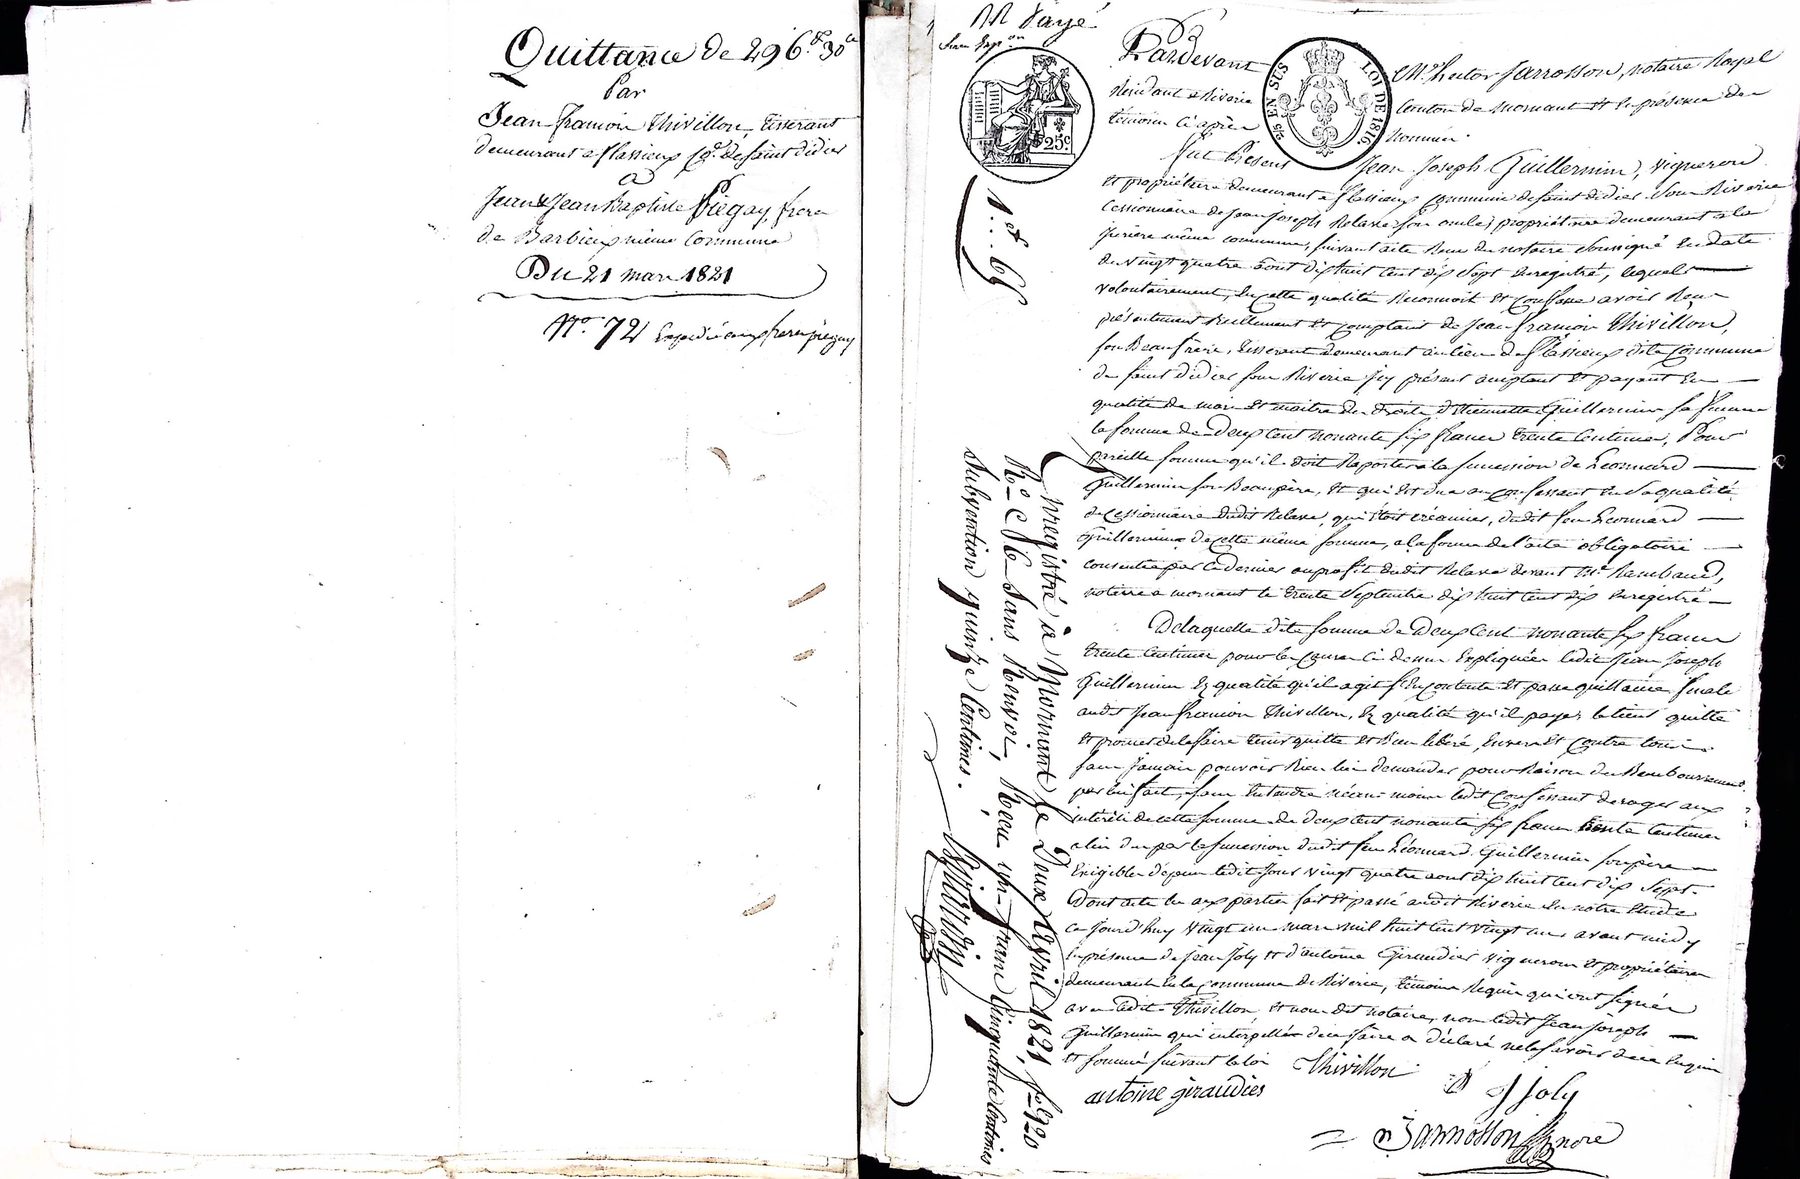 Quittance de 296.f 30c
Par
Jean francois thivillon, tisserant
demeurant a flassieux Cne. de saint didier
a
Jean & Jean Baptiste Piegay, freres
de Barbieux même Commune
Du 21 mars 1821
No. 72 Expedié aux freres piegay
Payé
25c
25 EN SUS LOI DE 1816
1.. et 65
Pardevant Me. hector Jarrosson, notaire Royal
Résidant a Riverie Canton de mornant et en présence des
témoins ci après nommés.
fut Présent Jean Joseph Guillermin, vigneron
et propriétaire demeurant a flassieux commune de saint didier sous Riverie
Cessionnaire de Jean Joseph Relave son oncle, propriétaire demeurant a la
même commune, suivant acte Recu du notaire soussigné en date
du vingt quatre aout dix huit cent dix sept enregistré, lequel
volontairement, en cette qualité Reconnoit et confesse avoir Recu
présentement Réellement et comptant de Jean francois thivillon,
son Beaufrère, tisserant demeurant au lieu de flassieux dite Commune
de saint didier sous Riverie ici présent acceptant et payant en
qualité de mari et maitre des droits d'Etiennette Guillermin sa femme
la somme de Deux cent nonante six francs trente Centimes, Pour
pareille somme qu'il doit Rapporter a la succession de Léonnard
Guillermin son Beaupère, et qui est due au confessant en sa qualité
de cessionnaire dudit Relave, qui étoit créancier, dudit feu Léonnard
Guillermin de cette même somme, a la forme de l'acte obligatoire
consentie par ce dernier au profit dudit Relave devant Me. Rambaud,
notaire a mornant le trente septembre dix huit cent dix enregistré
De laquelle dite somme de Deux Cent nonante six francs
trente centimes pour les causes ci dessus Expliquées ledit Jean Joseph
Guillermin en qualité qu'il agit s'en contente et passe quittance finale
audit Jean francois thivillon, en qualité qu'il paye, le tient quitte
et promet de le faire tenir quitte et Bien libéré, Envers et contre tous
sans Jamais pouvoir Rien lui demander pour Raison du Remboursement
par lui fait, sans Entendre néan-moins ledit Confessant deroger aux
intérêts de cette somme de deux cent nonante six francs trente centimes
a lui dus par la succession dudit feu Léonnard Guillermin son père
Exigibles depuis ledit jour vingt quatre aout dix huit cent dix sept.
Dont acte lu aux parties fait et passé audit Riverie en notre Etude
ce jourd'huy vingt un mars mil huit cent vingt un avant midy
en présence de Jean Joly et d'antoine Giraudier vignerons et propriétaires
demeurant en la commune de Riverie, témoins Requis qui ont signés
avec ledit Thivillon et nous dit notaire, non ledit Jean Joseph
Guillermin qui interpellé de ce faire a déclaré ne le savoir de ce Enquis
et sommé suivant la loi
Thivillon
antoine giraudier
J Joly
Jarrosson nore
Enregistré à Mornant le Deux Avril 1821, fo. 120
Ro. C. 6 Sans Renvoi, Recu un franc Cinquante Centimes
Subvention quinze Centimes.